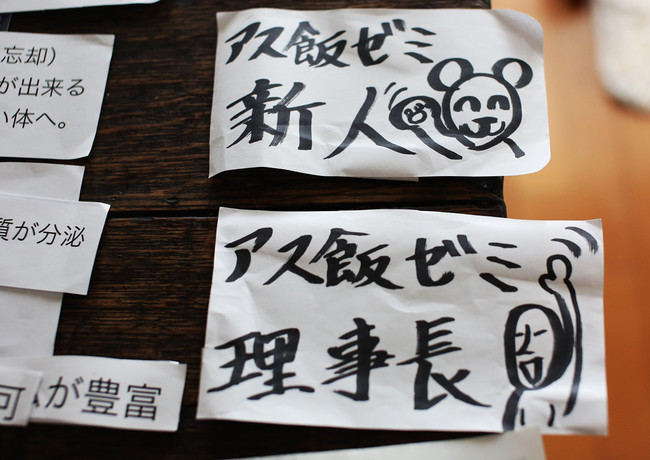 忘却）
が出来る
い体へ。
質が分泌
可
が豊富
アス飯ゼミ
新人
アス飯ゼミ
理事長